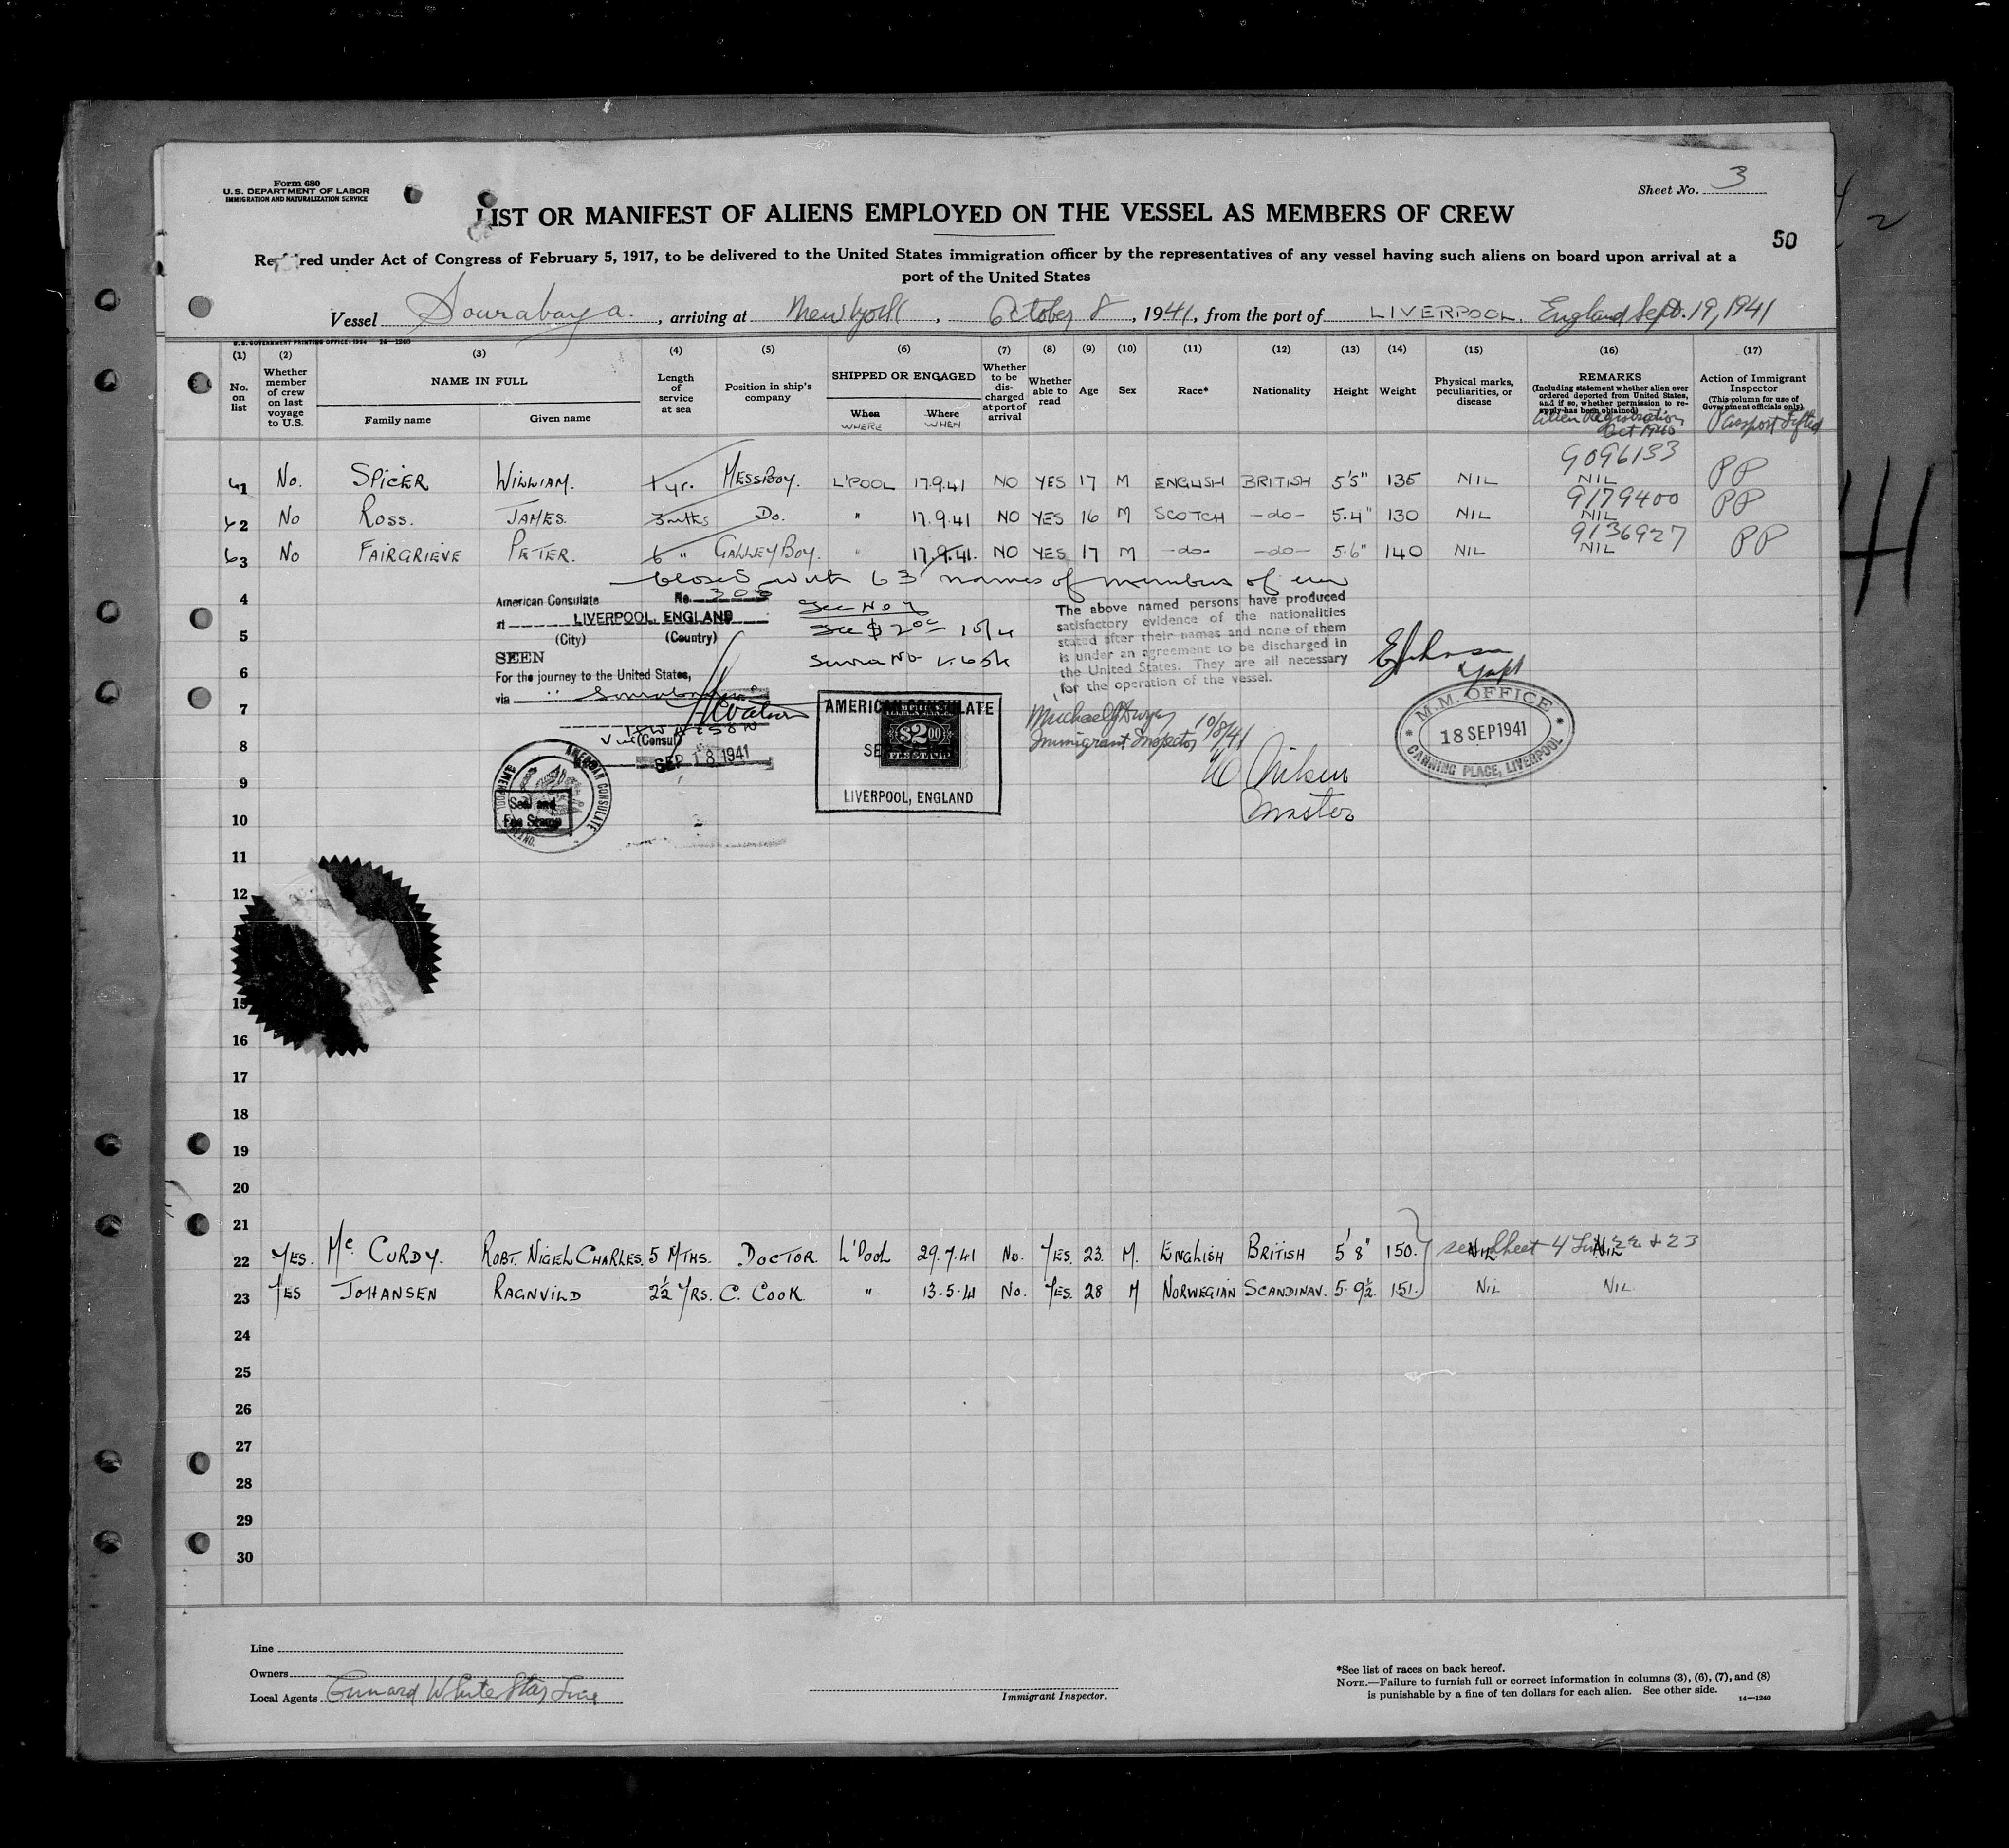 Form 680
U.S. DEPARTMENT OF LABOR
IMMIGRATION AND NATURALIZATION SERVICE
Sheet No. 3
LIST OR MANIFEST OF ALIENS EMPLOYED ON THE VESSEL AS MEMBERS OF CREW
50
Required under Act of Congress of February 5, 1917, to be delivered to the United States immigration officer by the representatives of any vessel having such aliens on board upon arrival at a
port of the United States
Vessel Sourabaya., arriving at New York, October 8, 1941, from the port of LIVERPOOL. England Sept. 19, 1941
U.S. GOVERNMENT PRINTING OFFICE: 1934 14—1240
(1) (2) (3) (4) (5) (6) (7) (8) (9) (10) (11) (12) (13) (14) (15) (16) (17)
No. on list
Whether member of crew on last voyage to U.S.
NAME IN FULL
Family name Given name
Length of service at sea
Position in ship's company
SHIPPED OR ENGAGED
When Where
WHERE WHEN
Whether to be discharged at port of arrival
Whether able to read
Age
Sex
Race*
Nationality
Height
Weight
Physical marks, peculiarities, or disease
REMARKS
(Including statement whether alien ever ordered deported from United States, and if so, whether permission to reapply has been obtained)
Alien Registration
Oct 1940
Action of Immigrant Inspector
(This column for use of Government officials only)
Passport Lifted
9096133
61 No. SPICER WILLIAM. 1 yr. MESSBOY. L'POOL 17.9.41 NO YES 17 M ENGLISH BRITISH 5'5" 135 NIL NIL PP
9179400
62 No ROSS. JAMES. 3 mths Do. " 17.9.41 NO YES 16 M SCOTCH -do- 5.4" 130 NIL NIL PP
9136927
63 No FAIRGRIEVE PETER. 6 " GALLEY BOY. " 17.9.41. NO YES 17 M -do- -do- 5.6" 140 NIL NIL PP
Closed with 63 names of members of crew
4
American Consulate No. 308
at LIVERPOOL, ENGLAND
(City) (Country)
SEEN
For the journey to the United States,
via
(Consul)
SEP 18 1941
5
6
7
8
9
10
Fee No 7
Fee $2.00
AMERICAN CONSULATE
$2.00
LIVERPOOL, ENGLAND
AMERICAN CONSULATE
Seal and
Fee Stamp
The above named persons have produced
satisfactory evidence of the nationalities
stated after their names and none of them
is under an agreement to be discharged in
the United States. They are all necessary
for the operation of the vessel.
Michael J Dwyer 10/8/41
Immigrant Inspector
Master
M.M. OFFICE
18 SEP 1941
* CANNING PLACE, LIVERPOOL *
11
12
15
16
17
18
19
20
21
22 YES. Mc CURDY. ROBT. NIGEL CHARLES. 5 MTHS. DOCTOR. L'POOL 29.7.41 No. YES. 23. M. ENGLISH BRITISH 5'8" 150. NIL NIL
see Sheet 4 Line 22 & 23
23 YES JOHANSEN RAGNVILD 2½ YRS. C. COOK " 13.5.41 No. YES. 28 M NORWEGIAN SCANDINAV. 5.9½ 151. NIL NIL.
24
25
26
27
28
29
30
Line
Owners
Local Agents Cunard White Star Line
Immigrant Inspector.
*See list of races on back hereof.
NOTE.—Failure to furnish full or correct information in columns (3), (6), (7), and (8)
is punishable by a fine of ten dollars for each alien. See other side.
14—1240